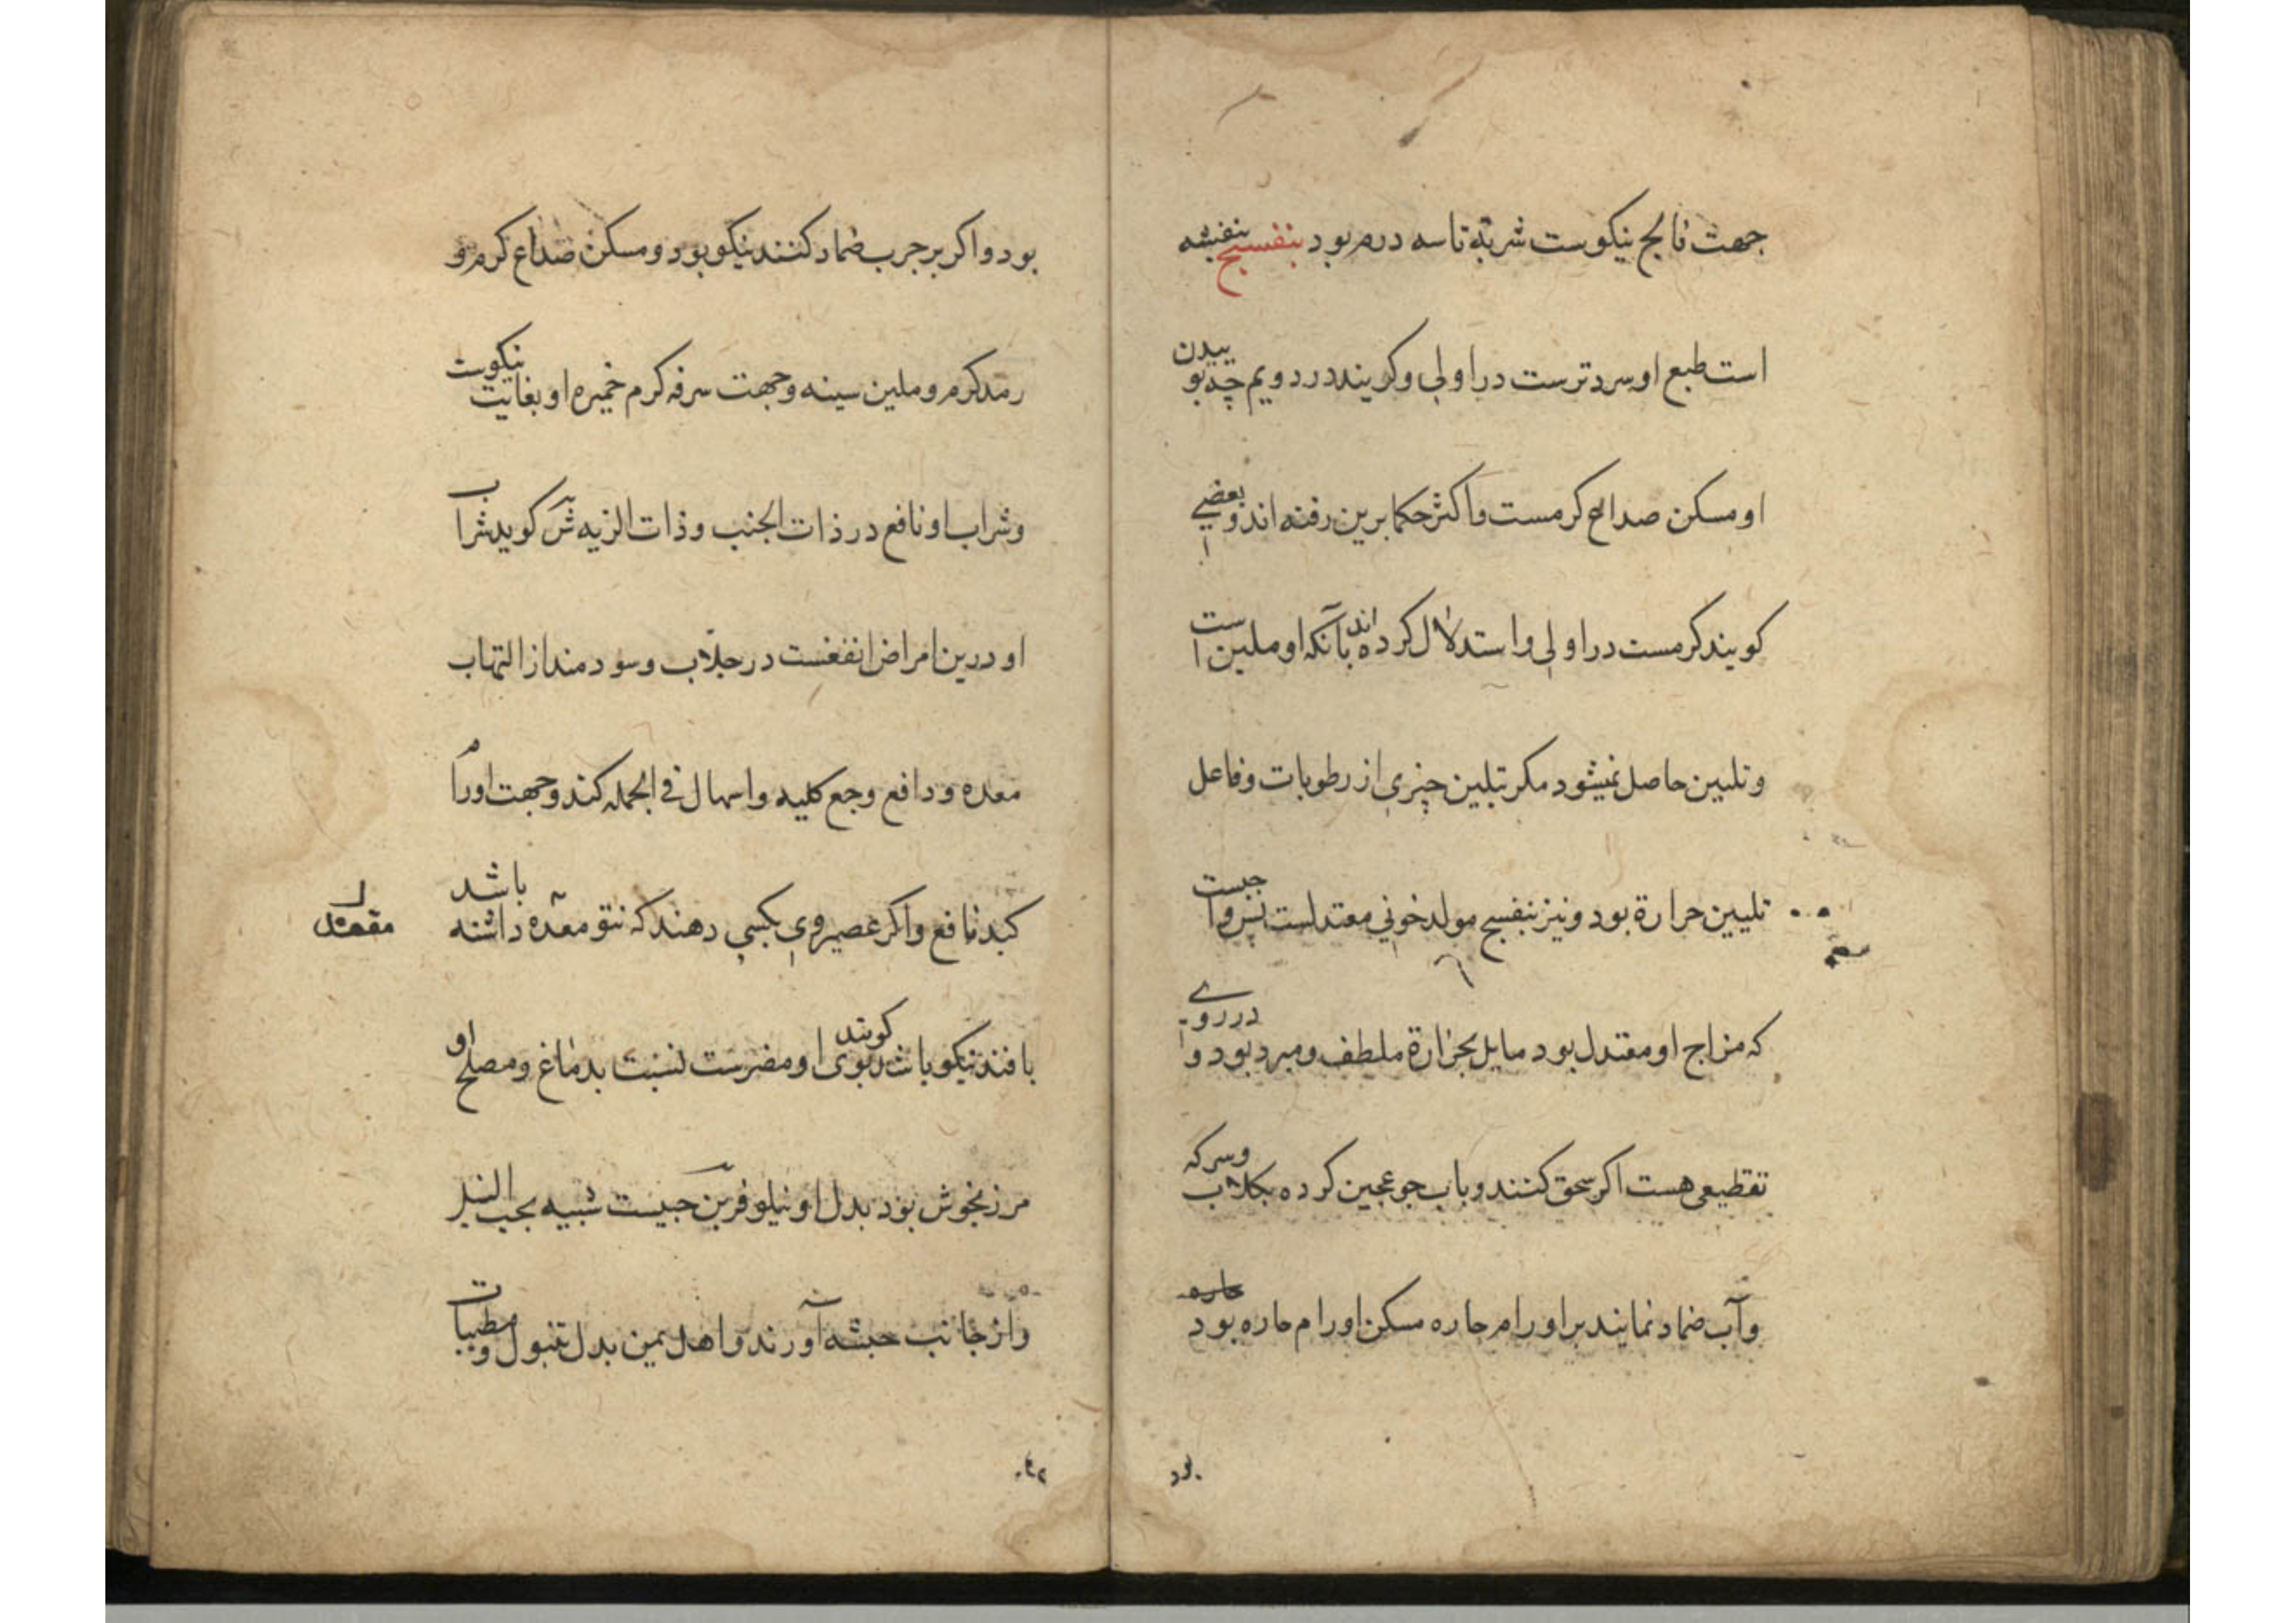 جهت فالج نیکوست شربة تا سه درم بود بنفسج بنفشه
است طبع او سرد ترست در اولی و کویند در دویم چه بوییدن
او مسکن صداع کرمست و اکثر حکما برین رفته اند و بعضی
کویند کرمست در اولی و استدلال کرده اند بآنکه او ملین است
و تلیین حاصل نمیشود مکر تلیین چیزی از رطوبات و فاعل
تلیین حرارة بود و نیز بنفسج مولد خونی معتدلست پس واجبست
که مزاج او معتدل بود مایل بحرارة ملطف و مبرد بود و در روی
تقطیعی هست اکر سحق کنند و باب جو عجین کرده بکلاب و سرکه
و آب ضماد نمایند بر اورام حاره مسکن اورام حاره بود
بود و اکر بر جرب ضماد کنند نیکو بود و مسکن صداع کرم و
رمد کرم و ملین سینه و جهت سرفه کرم خمیره او بغایت نیکوست
و شراب او نافع در ذات الجنب و ذات الریه کوید شراب
او درین امراض انفعست در جلاب و سودمند از التهاب
معده و دافع وجع کلیه و اسهال فی الجمله کند و جهت اورام
کبد نافع و اکر عصیر وی بکسی دهند که نتو معده داشته باشد
مقعد
یافند نیکو باشد کویند بوی او مضرست نسبت بدماغ و مصلح او
مرزنجوش بود بدل او نیلوفر حبیست شبیه بحب النیل
و از جانب حبشه آورند و اهل یمن بدل تنبول و مطیبات